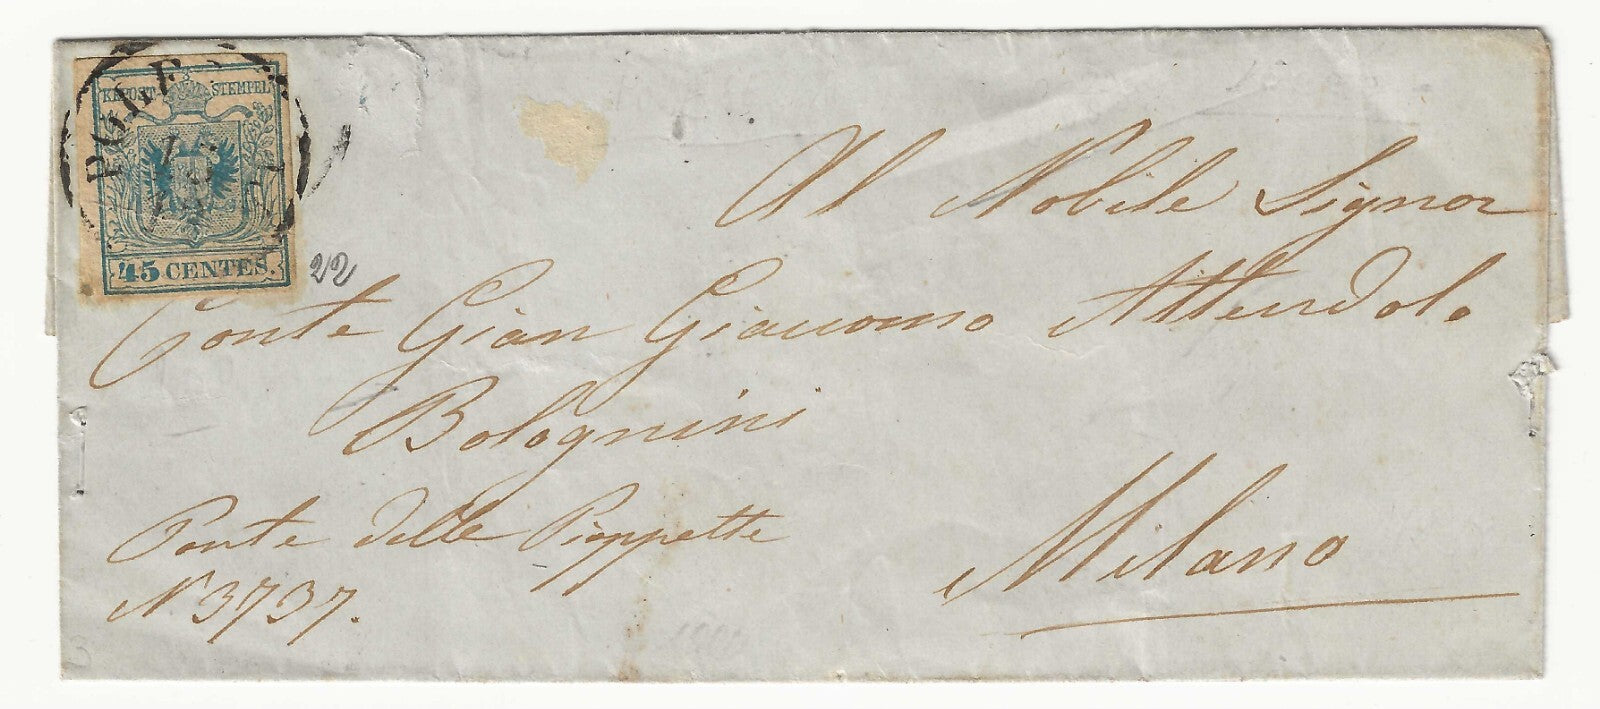 KKPOST-STEMPEL
45 CENTES.
22
Al Nobile Signor
Conte Gian Giacomo Attendolo
Bolognini
Ponte delle Pioppette
N° 3737.
Milano